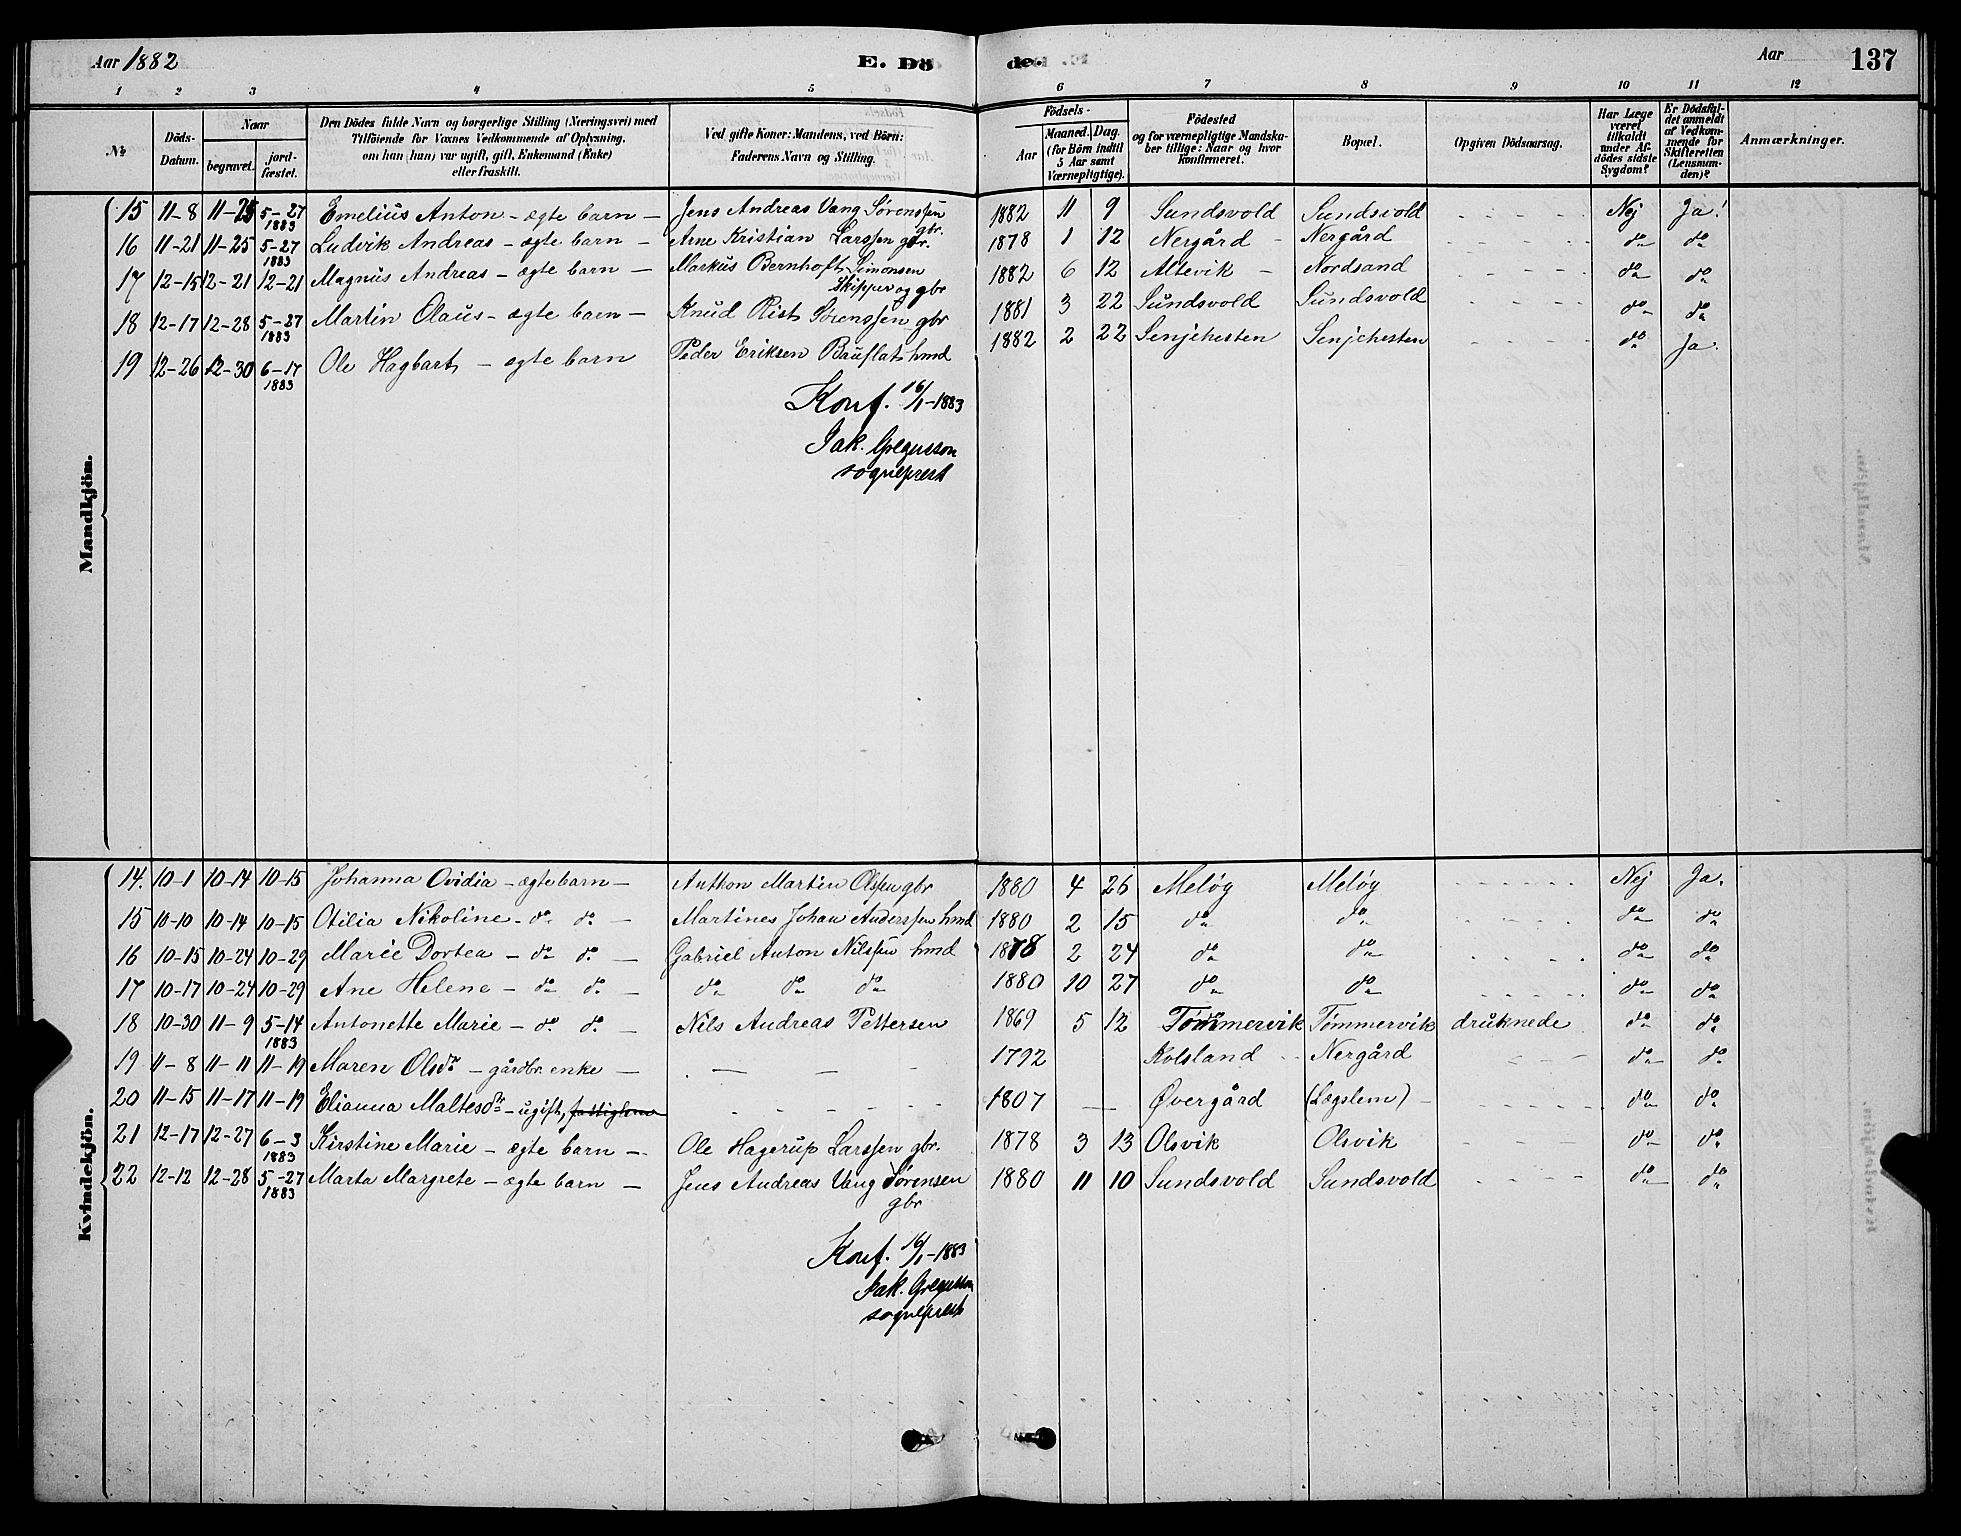 Aar 1882 E. Dö de. Aar 137
1 2 3 4 5 6 7 8 9 10 11 12
No. Döds-Datum. Naar begravet. jord-fæstet. Den Dödes fulde Navn og borgerlige Stilling (Næringsvei) med Tilföiende for Voxnes Vedkommende af Oplysning, om han (hun) var ugift, gift, Enkemand (Enke) eller fraskilt. Ved gifte Koner: Mandens, ved Börn: Faderens Navn og Stilling. Födsels- Aar Maaned. Dag. (for Börn indtil 5 Aar samt Værnepligtige). Födested og for værnepligtige Mandskaber tillige: Naar og hvor Konfirmeret. Bopæl. Opgiven Dödsaarsag. Har Læge været tilkaldt under Afdödes sidste Sygdom? Er Dödsfaldet anmeldt af Vedkommende for Skifteretten (Lensmanden)? Anmærkninger.
Mandkjön.
15 11-8 11-25 5-27 1883 Emelius Anton - ægte barn - Jens Andreas Vang Sørenssen gbr. 1882 11 9 Sundsvold Sundsvold - - - - - Nej Ja!
16 11-21 11-25 5-27 1883 Ludvik Andreas - ægte barn - Arne Kristian Larssen gbr. 1878 1 12 Nergård - Nergård - - - - - do do
17 12-15 12-21 12-21 Magnus Andreas - ægte barn - Markus Bernhoft Simonsen Skipper og gbr 1882 6 12 Altevik - Nordsand - - - - - do do
18 12-17 12-28 5-27 1883 Martin Olaus - ægte barn - Knud Rist Sørenssen gbr 1881 3 22 Sundsvold Sundsvold - - - - - do do
19 12-26 12-30 6-17 1883 Ole Hagbart - ægte barn Peder Eriksen Bauflat hmd 1882 2 22 Senjehesten Senjehesten - - - - do Ja.
Konf. 16/1-1883
Jak. Gregusson
sogneprest
Kvindekjön.
14. 10-1 10-14 10-15 Johanna Ovidia - ægte barn - Anthon Martin Olssen gbr 1880 4 26 Meløy Meløy - - - - - Nej Ja.
15 10-10 10-14 10-15 Otilia Nikoline - do do - Martines Johan Anderssen hmd 1880 2 15 do do - - - - - do do
16 10-15 10-24 10-29 Marie Dortea - do do - Gabriel Anton Nilssen hmd 1878 2 24 do do - - - - - do do
17 10-17 10-24 10-29 Ane Helene - do do - do do do 1880 10 27 do do - - - - - do do
18 10-30 11-9 5-14 1883 Antonette Marie - do do - Nils Andreas Pettersen 1869 5 12 Tømmervik Tømmervik druknede do do
19 11-8 11-11 11-19 Maren Olsdr - gårdbr. enke - - - - 1792 Kolsland - Nergård - - - do do
20 11-15 11-17 11-19 Elianna Maltesdr - ugift, fattiglem - - - - - 1807 - Øvergård (Lægslem) - do do
21 12-17 12-27 6-3 1883 Kirstine Marie - ægte barn - Ole Hagerup Larssen gbr. 1878 3 13 Olsvik Olsvik - - - - do do
22 12-12 12-28 5-27 1883 Marta Margrete - ægte barn - Jens Andreas Vang Sørensen gbr 1880 11 10 Sundsvold Sundsvold - - - - do do
Konf. 16/1-1883
Jak. Gregusson
sogneprest